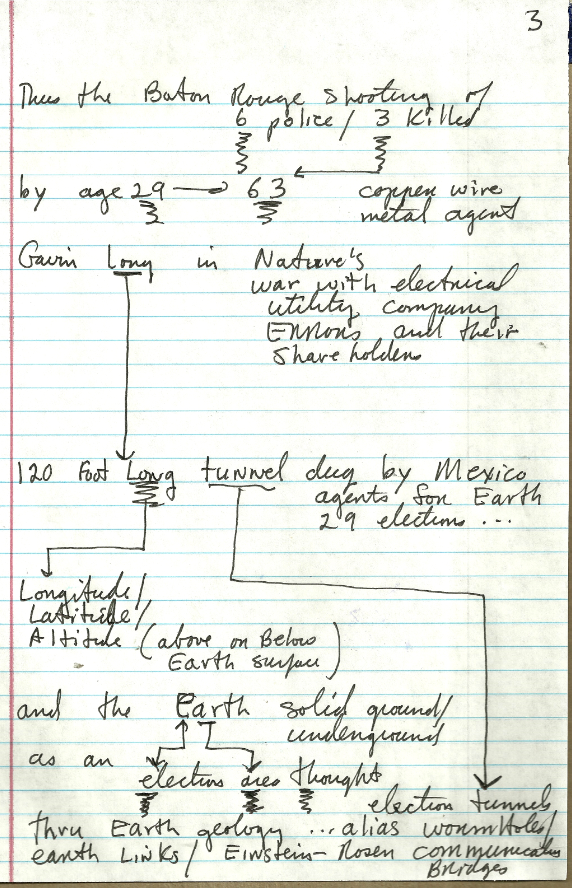 3
Thus the Baton Rouge shooting of
6 police / 3 killed
by age 29 → 63 copper wire
metal agent
Gavin Long in Nature's
war with electrical
utility company
ENRONs and their
share holders
120 Foot Long tunnel dug by Mexico
agents for Earth
29 electrons ...
Longitude/
Latitude/
Altitude (above or Below
Earth surface)
and the Earth solid ground/
underground
as an
electron area thought
electron tunnels
thru Earth geology ... alias wormHoles/
earth LINKS / EINSTEIN-Rosen communication
Bridges